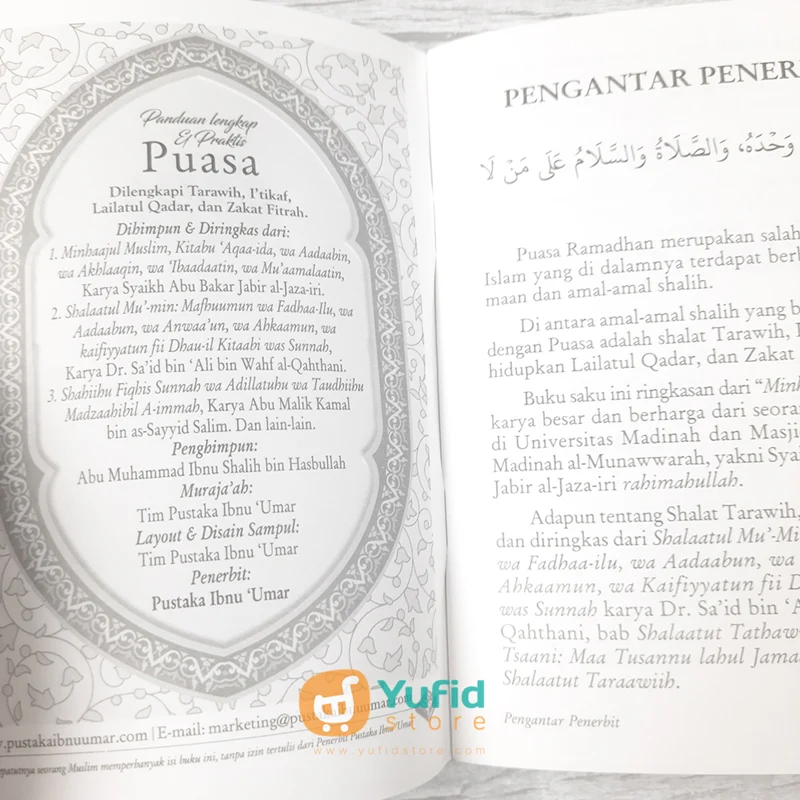 Panduan lengkap
& Praktis
Puasa
Dilengkapi Tarawih, I'tikaf,
Lailatul Qadar, dan Zakat Fitrah.
Dihimpun & Diringkas dari:
1. Minhaajul Muslim, Kitabu 'Aqaa-ida, wa Aadaabin,
wa Akhlaaqin, wa 'Ibaadaatin, wa Mu'aamalaatin,
Karya Syaikh Abu Bakar Jabir al-Jaza-iri.
2. Shalaatul Mu'-min: Mafhuumun wa Fadhaa-Ilu, wa
Aadaabun, wa Anwaa'un, wa Ahkaamun, wa
kaifiyyatun fii Dhau-il Kitaabi was Sunnah,
Karya Dr. Sa'id bin 'Ali bin Wahf al-Qahthani.
3. Shahiihu Fiqhis Sunnah wa Adillatuhu wa Taudhiihu
Madzaahibil A-immah, Karya Abu Malik Kamal
bin as-Sayyid Salim. Dan lain-lain.
Penghimpun:
Abu Muhammad Ibnu Shalih bin Hasbullah
Muraja'ah:
Tim Pustaka Ibnu 'Umar
Layout & Disain Sampul:
Tim Pustaka Ibnu 'Umar
Penerbit:
Pustaka Ibnu 'Umar
.pustakaibnuumar.com | E-mail: marketing@pustakaibnuumar.com
seorang Muslim memperbanyak isi buku ini, tanpa izin tertulis dari Penerbit Pustaka Ibnu 'Umar
PENGANTAR PENER
وَحْدَهُ، وَالصَّلَاةُ وَالسَّلَامُ عَلَى مَنْ لَا
Puasa Ramadhan merupakan salah
Islam yang di dalamnya terdapat berb
maan dan amal-amal shalih.
Di antara amal-amal shalih yang b
dengan Puasa adalah shalat Tarawih, I
hidupkan Lailatul Qadar, dan Zakat
Buku saku ini ringkasan dari "Minh
karya besar dan berharga dari seoran
di Universitas Madinah dan Masji
Madinah al-Munawwarah, yakni Sya
Jabir al-Jaza-iri rahimahullah.
Adapun tentang Shalat Tarawih,
dan diringkas dari Shalaatul Mu'-Mi
wa Fadhaa-ilu, wa Aadaabun, wa
Ahkaamun, wa Kaifiyyatun fii D
was Sunnah karya Dr. Sa'id bin 'A
Qahthani, bab Shalaatut Tathaw
Tsaani: Maa Tusannu lahul Jama
Shalaatut Taraawiih.
Pengantar Penerbit
Yufid
store
www.yufidstore.com